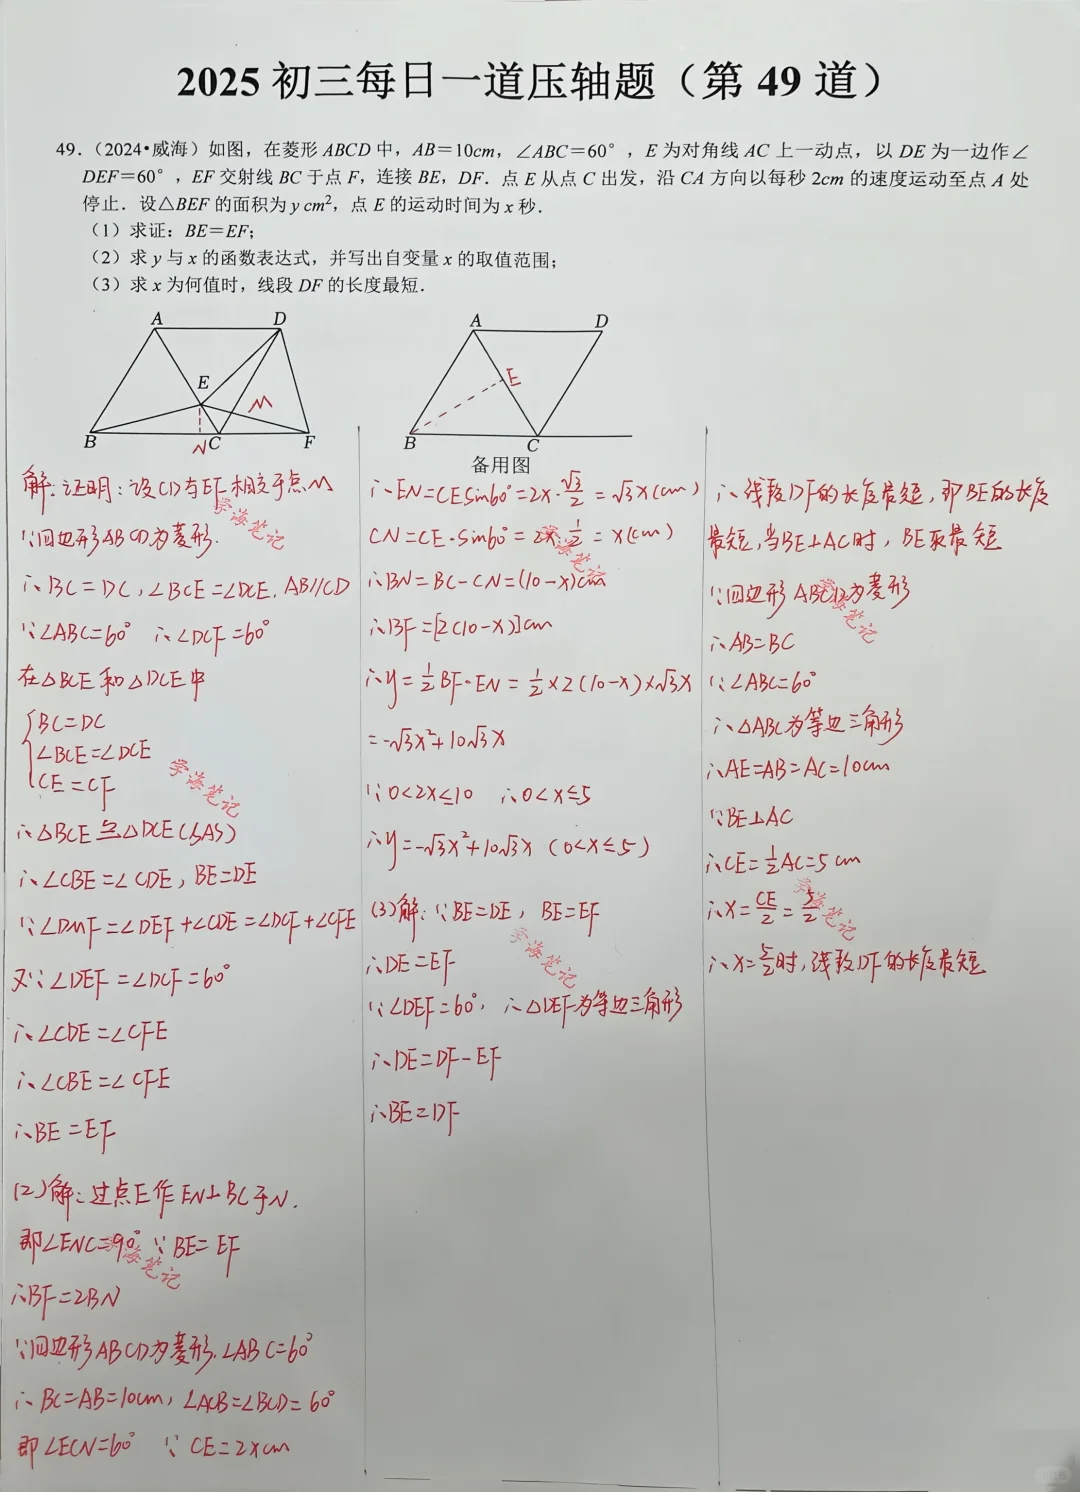 2025 初三每日一道压轴题（第 49 道）
49.（2024•威海）如图，在菱形 ABCD 中，AB＝10cm，∠ABC＝60°，E 为对角线 AC 上一动点，以 DE 为一边作∠
DEF＝60°，EF 交射线 BC 于点 F，连接 BE，DF．点 E 从点 C 出发，沿 CA 方向以每秒 2cm 的速度运动至点 A 处
停止．设△BEF 的面积为 y cm²，点 E 的运动时间为 x 秒．
（1）求证：BE＝EF；
（2）求 y 与 x 的函数表达式，并写出自变量 x 的取值范围；
（3）求 x 为何值时，线段 DF 的长度最短．
A D
E M
B N C F
A D
E
B C
备用图
解:证明:设CD与EF相交于点M
∵四边形ABCD为菱形.
∴BC=DC,∠BCE=∠DCE.AB//CD
∵∠ABC=60° ∴∠DCF=60°
在△BCE和△DCE中
BC=DC
∠BCE=∠DCE
CE=CF
∴△BCE≌△DCE(SAS)
∴∠CBE=∠CDE,BE=DE
∵∠DMF=∠DEF+∠CDE=∠DCF+∠CFE
又∵∠DEF=∠DCF=60°
∴∠CDE=∠CFE
∴∠CBE=∠CFE
∴BE=EF
(2)解:过点E作EN⊥BC于N.
即∠ENC=90° ∵BE=EF
∴BF=2BN
∵四边形ABCD为菱形.∠ABC=60°
∴BC=AB=10cm,∠ACB=∠BCD=60°
即∠ECN=60° ∵CE=2xcm
∴EN=CESin60°=2x·√3/2=√3x(cm)
CN=CE·sin60°=2x·1/2=x(cm)
∴BN=BC-CN=(10-x)cm
∴BF=[2(10-x)]cm
∴y=1/2BF·EN=1/2×2(10-x)×√3x
=-√3x²+10√3x
∵0<2x≤10 ∴0<x≤5
∴y=-√3x²+10√3x (0<x≤5)
(3)解:∵BE=DE, BE=EF
∴DE=EF
∵∠DEF=60°, ∴△DEF为等边三角形
∴DE=DF-EF
∴BE=DF
∴线段DF的长度最短,即BE的长度
最短,当BE⊥AC时,BE取最短
∵四边形ABCD为菱形
∴AB=BC
∵∠ABC=60°
∴△ABC为等边三角形
∴AE=AB=AC=10cm
∵BE⊥AC
∴CE=1/2AC=5cm
∴x=CE/2=5/2
∴x=5/2时,线段DF的长度最短
学海笔记
学海笔记
学海笔记
学海笔记
学海笔记
学海笔记
学海笔记